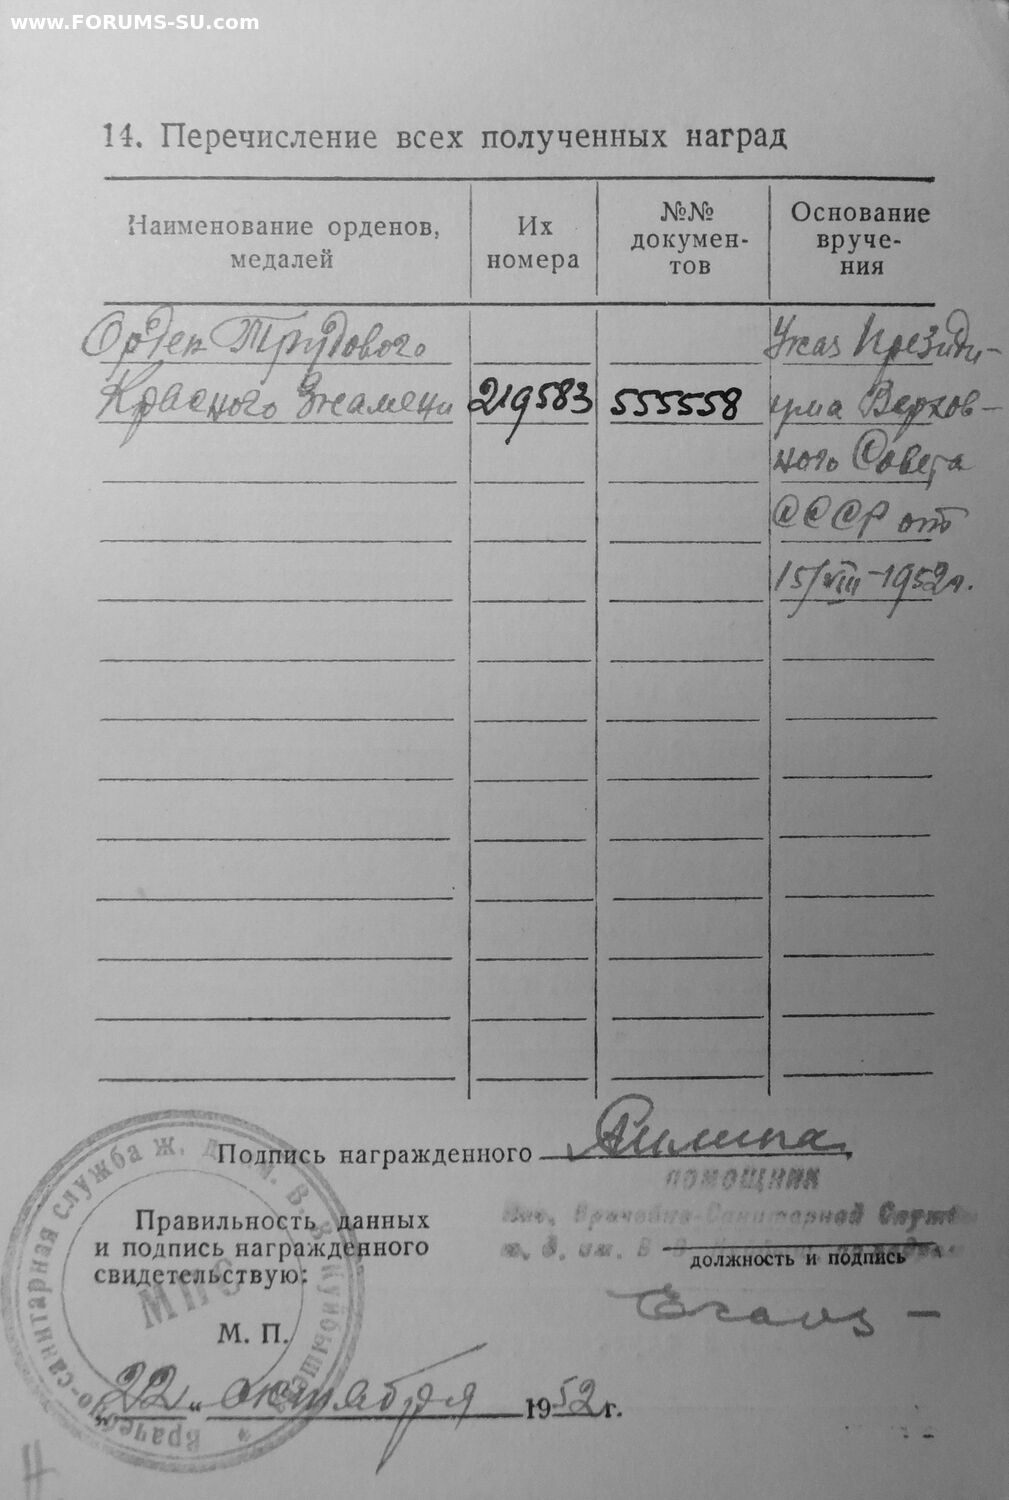 www.FORUMS-SU.com
14. Перечисление всех полученных наград
Наименование орденов, медалей
Их номера
№№ докумен-
тов
Основание вруче-
ния
Орден Трудового
Красного Знамени 219583 555558
Указ Президи-
ума Верхов-
ного Совета
СССР от
15/VIII-1952г.
Подпись награжденного
ПОМОЩНИК
Врачебно-Санитарной Службы
ж. д. им. В. В.
Правильность данных
и подпись награжденного
свидетельствую:
должность и подпись
МПС
М. П.
Врачебно-санитарная служба ж. д. им. В. В. Куйбышева
„22“ октября 1952г.